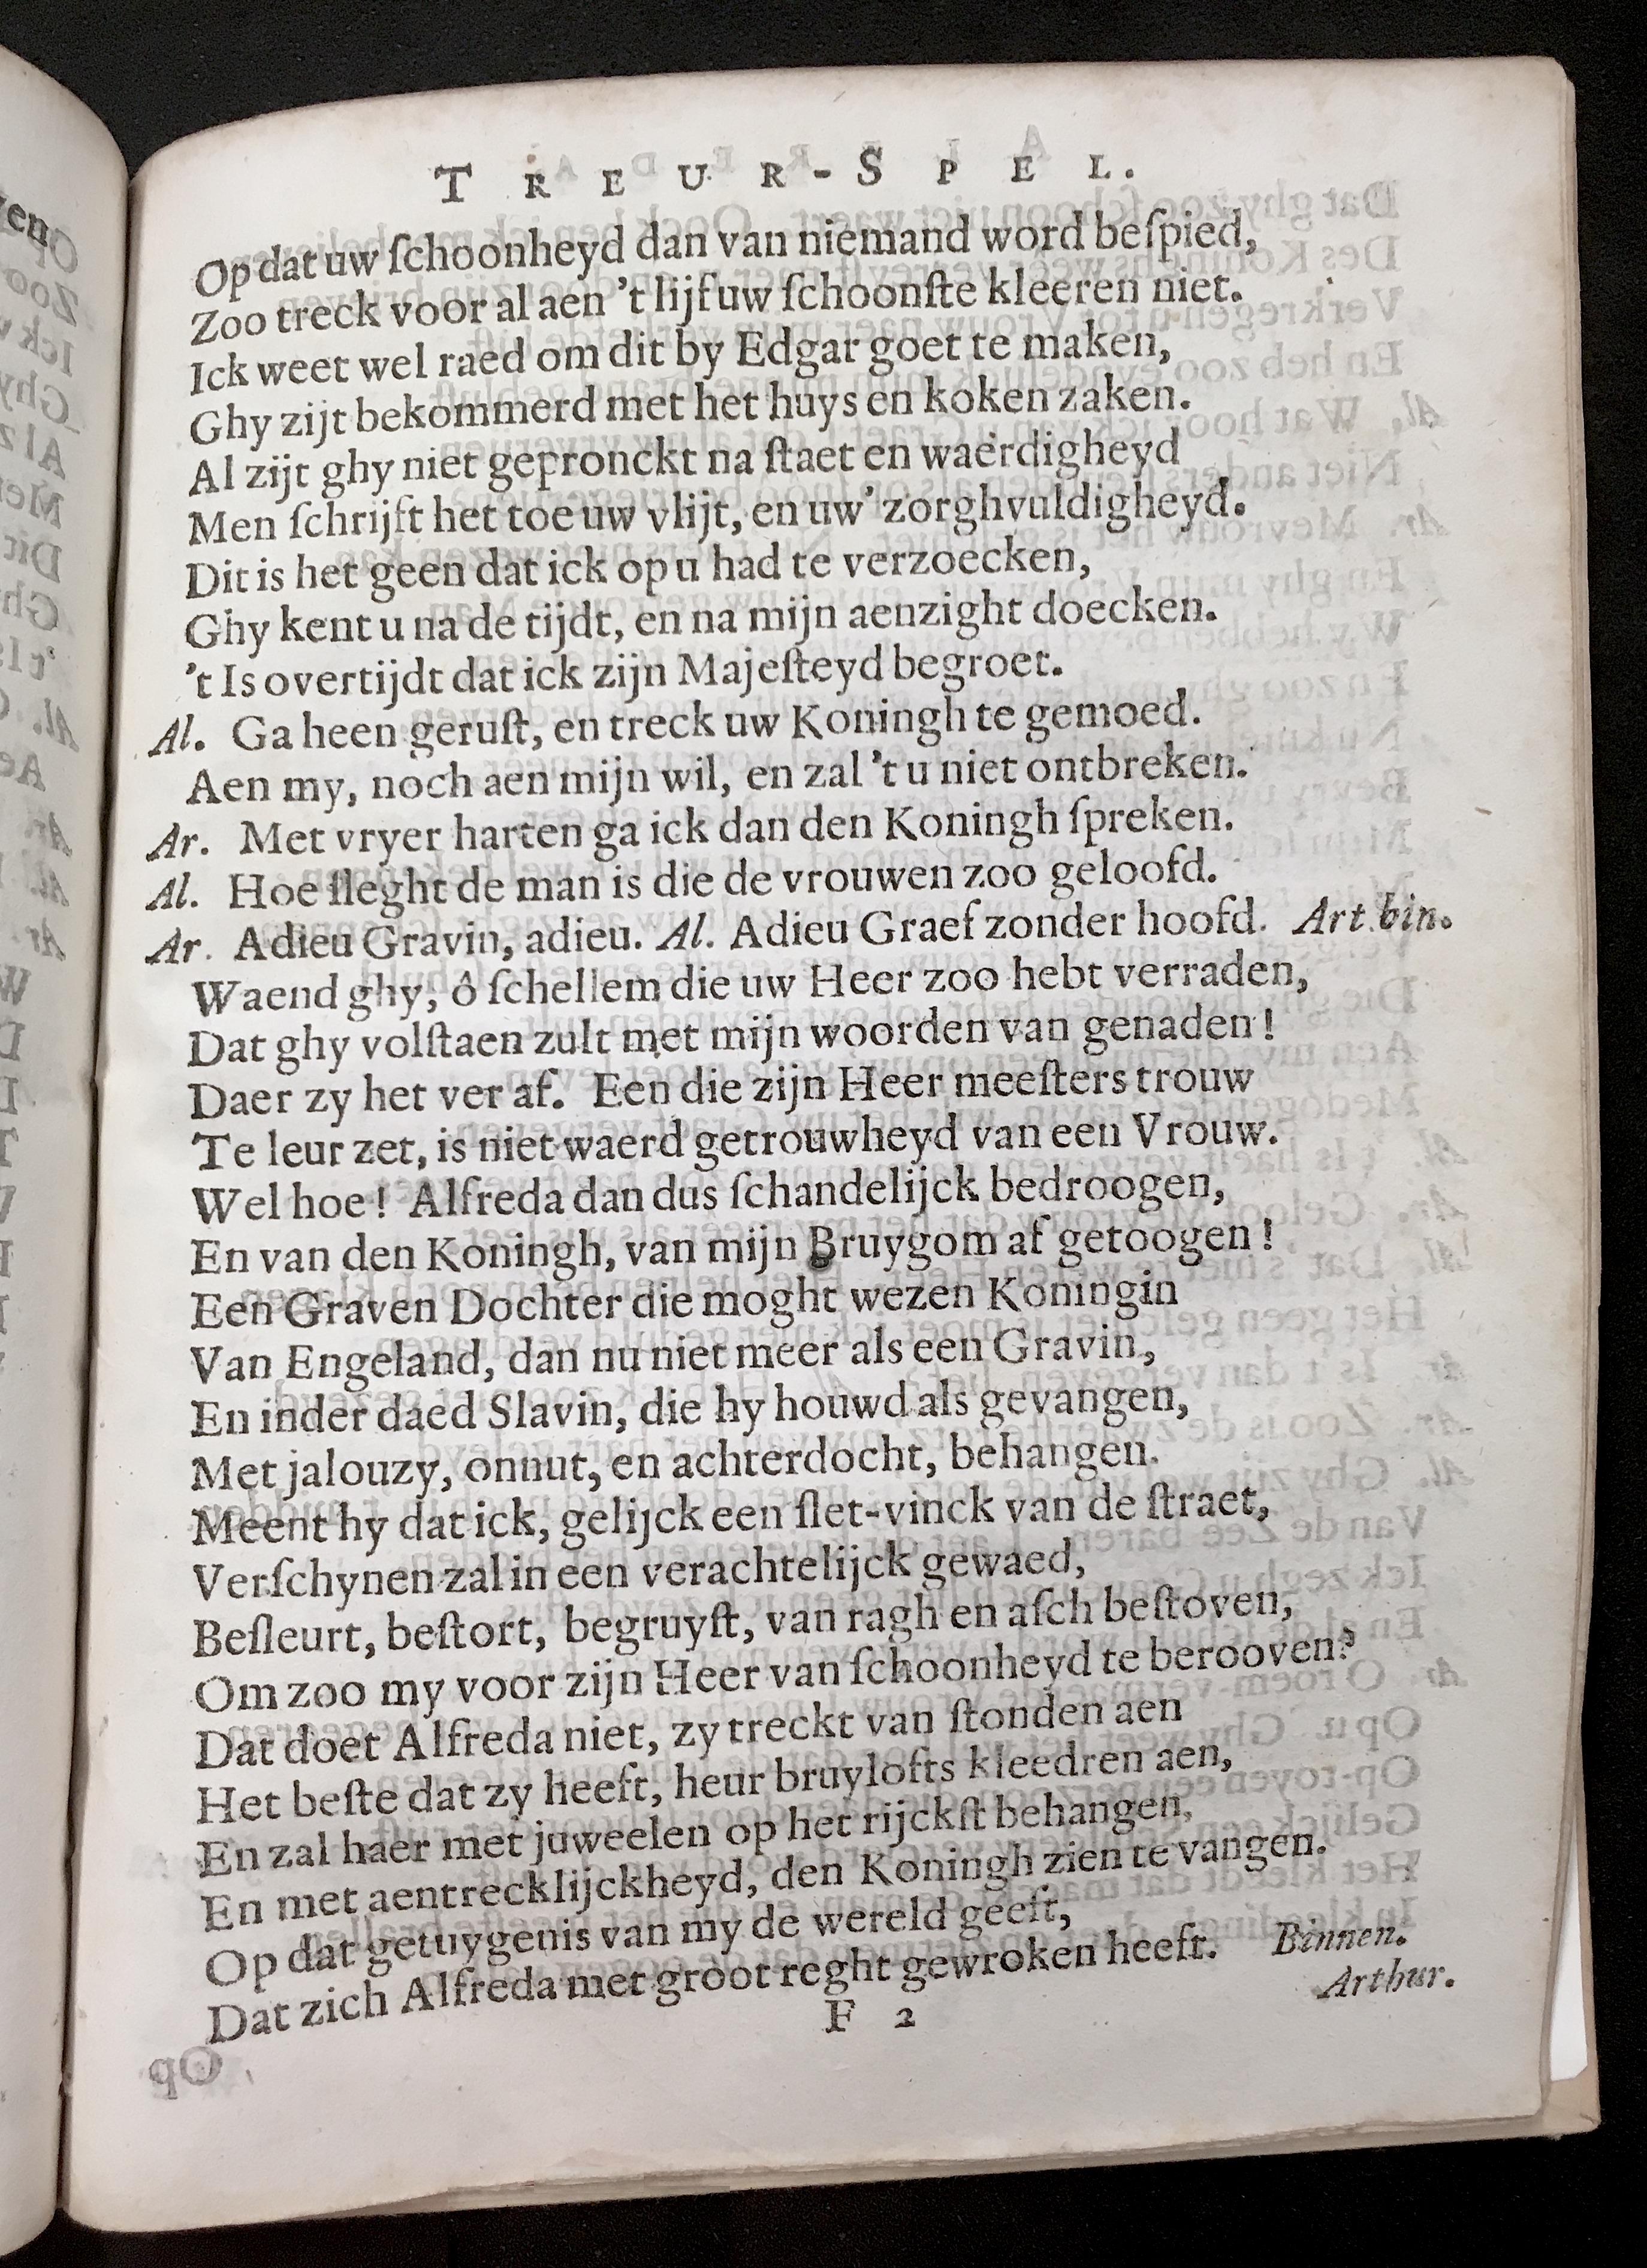 TREUR-SPEL.
Op dat uw ſchoonheyd dan van niemand word beſpied,
Zoo treck voor al aen 't lijf uw ſchoonſte kleeren niet.
Ick weet wel raed om dit by Edgar goet te maken,
Ghy zijt bekommerd met het huys en koken zaken.
Al zijt ghy niet gepronckt na ſtaet en waerdigheyd
Men ſchrijft het toe uw vlijt, en uw' zorghvuldigheyd.
Dit is het geen dat ick op u had te verzoecken,
Ghy kent u na de tijdt, en na mijn aenzight doecken.
't Is overtijdt dat ick zijn Majeſteyd begroet.
Al. Ga heen geruſt, en treck uw Koningh te gemoed.
Aen my, noch aen mijn wil, en zal 't u niet ontbreken.
Ar. Met vryer harten ga ick dan den Koningh ſpreken.
Al. Hoe ſleght de man is die de vrouwen zoo geloofd.
Ar. Adieu Gravin, adieu. Al. Adieu Graef zonder hoofd. Art bin.
Waend ghy, ô ſchellem die uw Heer zoo hebt verraden,
Dat ghy volſtaen zult met mijn woorden van genaden!
Daer zy het ver af. Een die zijn Heer meeſters trouw
Te leur zet, is niet waerd getrouwheyd van een Vrouw.
Wel hoe! Alfreda dan dus ſchandelijck bedroogen,
En van den Koningh, van mijn Bruygom af getoogen!
Een Graven Dochter die moght wezen Koningin
Van Engeland, dan nu niet meer als een Gravin,
En inder daed Slavin, die hy houwd als gevangen,
Met jalouzy, onnut, en achterdocht, behangen.
Meent hy dat ick, gelijck een ſlet-vinck van de ſtraet,
Verſchynen zal in een verachtelijck gewaed,
Beſleurt, beſtort, begruyſt, van ragh en aſch beſtoven,
Om zoo my voor zijn Heer van ſchoonheyd te berooven?
Dat doet Alfreda niet, zy treckt van ſtonden aen
Het beſte dat zy heeft, heur bruylofts kleedren aen,
En zal haer met juweelen op het rijckſt behangen,
En met aentrecklijckheyd, den Koningh zien te vangen.
Op dat getuygenis van my de wereld geeft,
Dat zich Alfreda met groot reght gewroken heeft. Binnen.
Arthur.
F 2